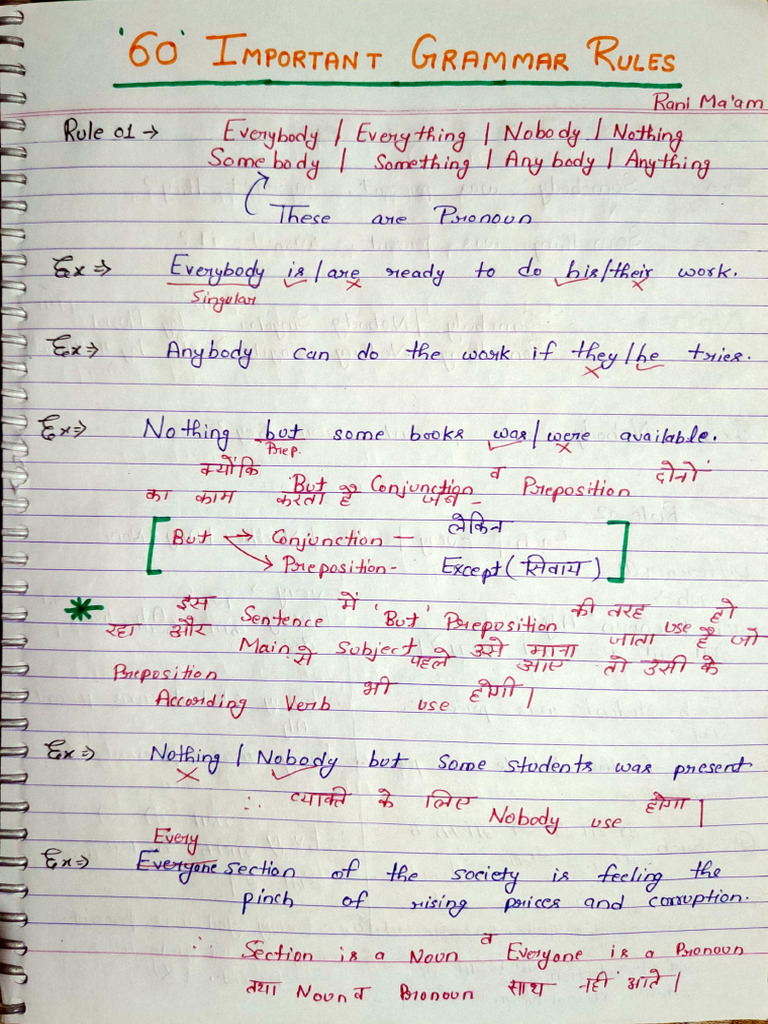 '60' IMPORTANT GRAMMAR RULES
Rani Ma'am
Rule 01 → Everybody / Everything / Nobody / Nothing
Somebody / Something / Anybody / Anything
These are Pronoun
Ex ⇒ Everybody is/are ready to do his/their work.
Singular
Ex ⇒ Anybody can do the work if they/he tries.
Ex ⇒ Nothing but some books was/were available.
Prep.
क्योंकि But Conjunction व Preposition दोनों
का काम करता है जैसे -
[But → Conjunction — लेकिन
→ Preposition - Except (सिवाय)]
इस Sentence में 'But' Preposition की तरह use हो
रहा और Main Subject उसे माना जाता है जो
Preposition से पहले आए तो उसी के
According Verb भी use होगी।
Ex ⇒ Nothing / Nobody but some students was present
∴ व्यक्ति के लिए Nobody use होगा।
Every
Ex ⇒ Everyone section of the society is feeling the
pinch of rising prices and corruption.
∴ Section is a Noun व Everyone is a Pronoun
तथा Noun व Pronoun साथ नहीं आते।